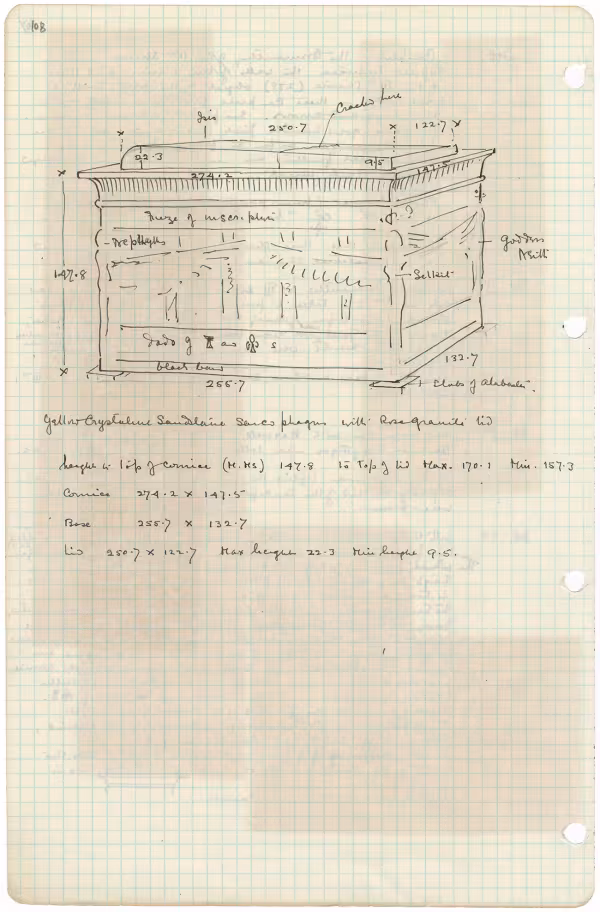 108
Isis
250.7
Cracked here
122.7
22.3
9.5
274.2
147.5
Frieze of inscription
?
Nephthys
Goddess
147.8
Selkit
Dado of and s
black band
132.7
255.7
Slabs of Alabaster.
Yellow Crystaline Sandstone Sarcophagus with Rose Granite lid
height to top of cornice 147.8 to Top of lid Max. 170.1 Min. 157.3
Cornice 274.2 × 147.5
Base 255.7 × 132.7
Lid 250.7 × 122.7 Max height 22.3 Min height 9.5.